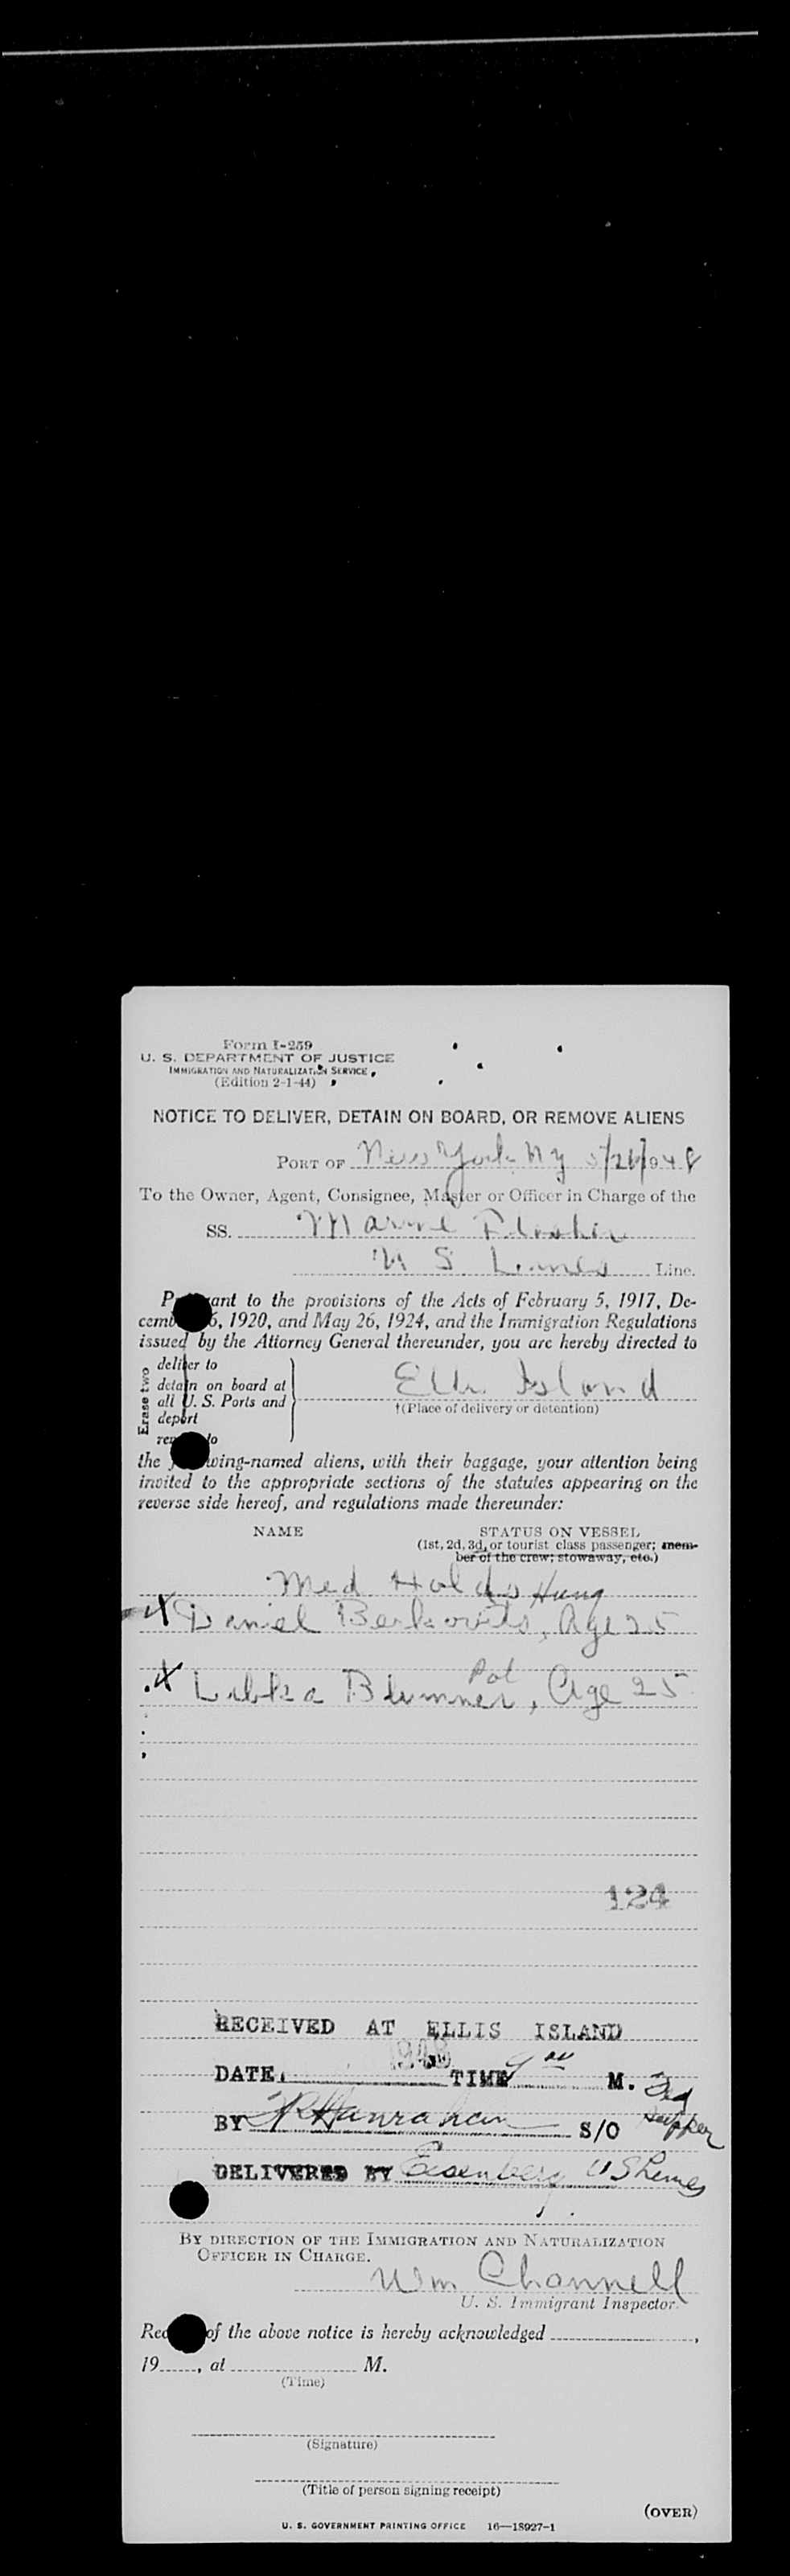 Form I-259
U. S. DEPARTMENT OF JUSTICE
IMMIGRATION AND NATURALIZATION SERVICE
(Edition 2-1-44)
NOTICE TO DELIVER, DETAIN ON BOARD, OR REMOVE ALIENS
PORT OF New York NY
To the Owner, Agent, Consignee, Master or Officer in Charge of the
SS. Marine
U S Lines Line.
to the provisions of the Acts of February 5, 1917, De-
1920, and May 26, 1924, and the Immigration Regulations
issued by the Attorney General thereunder, you are hereby directed to
Erase two
deliver to
detain on board at
all U. S. Ports and
deport
Ellis Island
†(Place of delivery or detention)
the wing-named aliens, with their baggage, your attention being
invited to the appropriate sections of the statutes appearing on the
reverse side hereof, and regulations made thereunder:
NAME STATUS ON VESSEL
(1st, 2d, 3d, or tourist class passenger; mem-
ber of the crew; stowaway, etc.)
Med Holds Hung
X Daniel Berkovits, Age 25
Pol
X Blumner, Age 25
124
RECEIVED AT ELLIS ISLAND
1948
DATE TIME M.
BY Hanrahan S/O
DELIVERED BY Eisenberg U S Lines
BY DIRECTION OF THE IMMIGRATION AND NATURALIZATION
OFFICER IN CHARGE.
Wm Channell
U. S. Immigrant Inspector.
of the above notice is hereby acknowledged ,
19 , at M.
(Time)
(Signature)
(Title of person signing receipt)
(OVER)
U. S. GOVERNMENT PRINTING OFFICE 16—18927-1